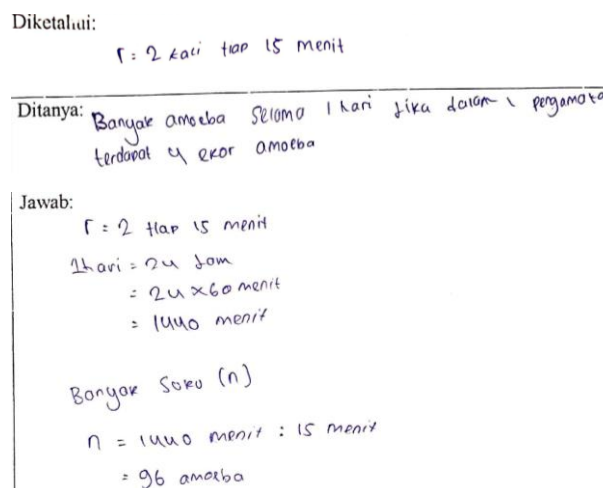 Diketahui:
r = 2 kali tiap 15 menit
Ditanya: Banyak amoeba selama 1 hari jika dalam 1 pengamata
terdapat 4 ekor amoeba
Jawab:
r = 2 tiap 15 menit
1 hari = 24 Jam
= 24 x 60 menit
= 1440 menit
Banyak Suku (n)
n = 1440 menit : 15 menit
= 96 amoeba